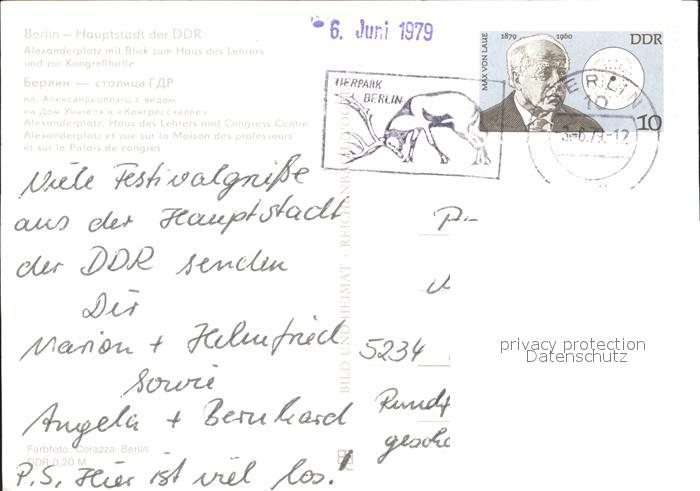 Berlin – Hauptstadt der DDR
Alexanderplatz mit Blick zum Haus des Lehrers
und zur Kongreßhalle
Берлин — столица ГДР
пл. Александерплатц с видом
на Дом Учителя и «Конгрессхалле»
Alexanderplatz, Haus des Lehrers and Congress Centre
Alexanderplatz et vue sur la Maison des professeurs
et sur le Palais de congrès
6. Juni 1979
TIERPARK
BERLIN
MAX VON LAUE
1879 1960
DDR
10
BERLIN
10
5.6.79-12
Viele Festivalgrüße
aus der Hauptstadt
der DDR senden
Dir
Marion + Helmfried
sowie
Angela + Bernhard
P.S. Hier ist viel los!
Farbfoto: Corazza, Berlin
DDR 0,20 M
BILD UND HEIMAT · REICHENBACH
5234
Rundf
gesch
privacy protection
Datenschutz